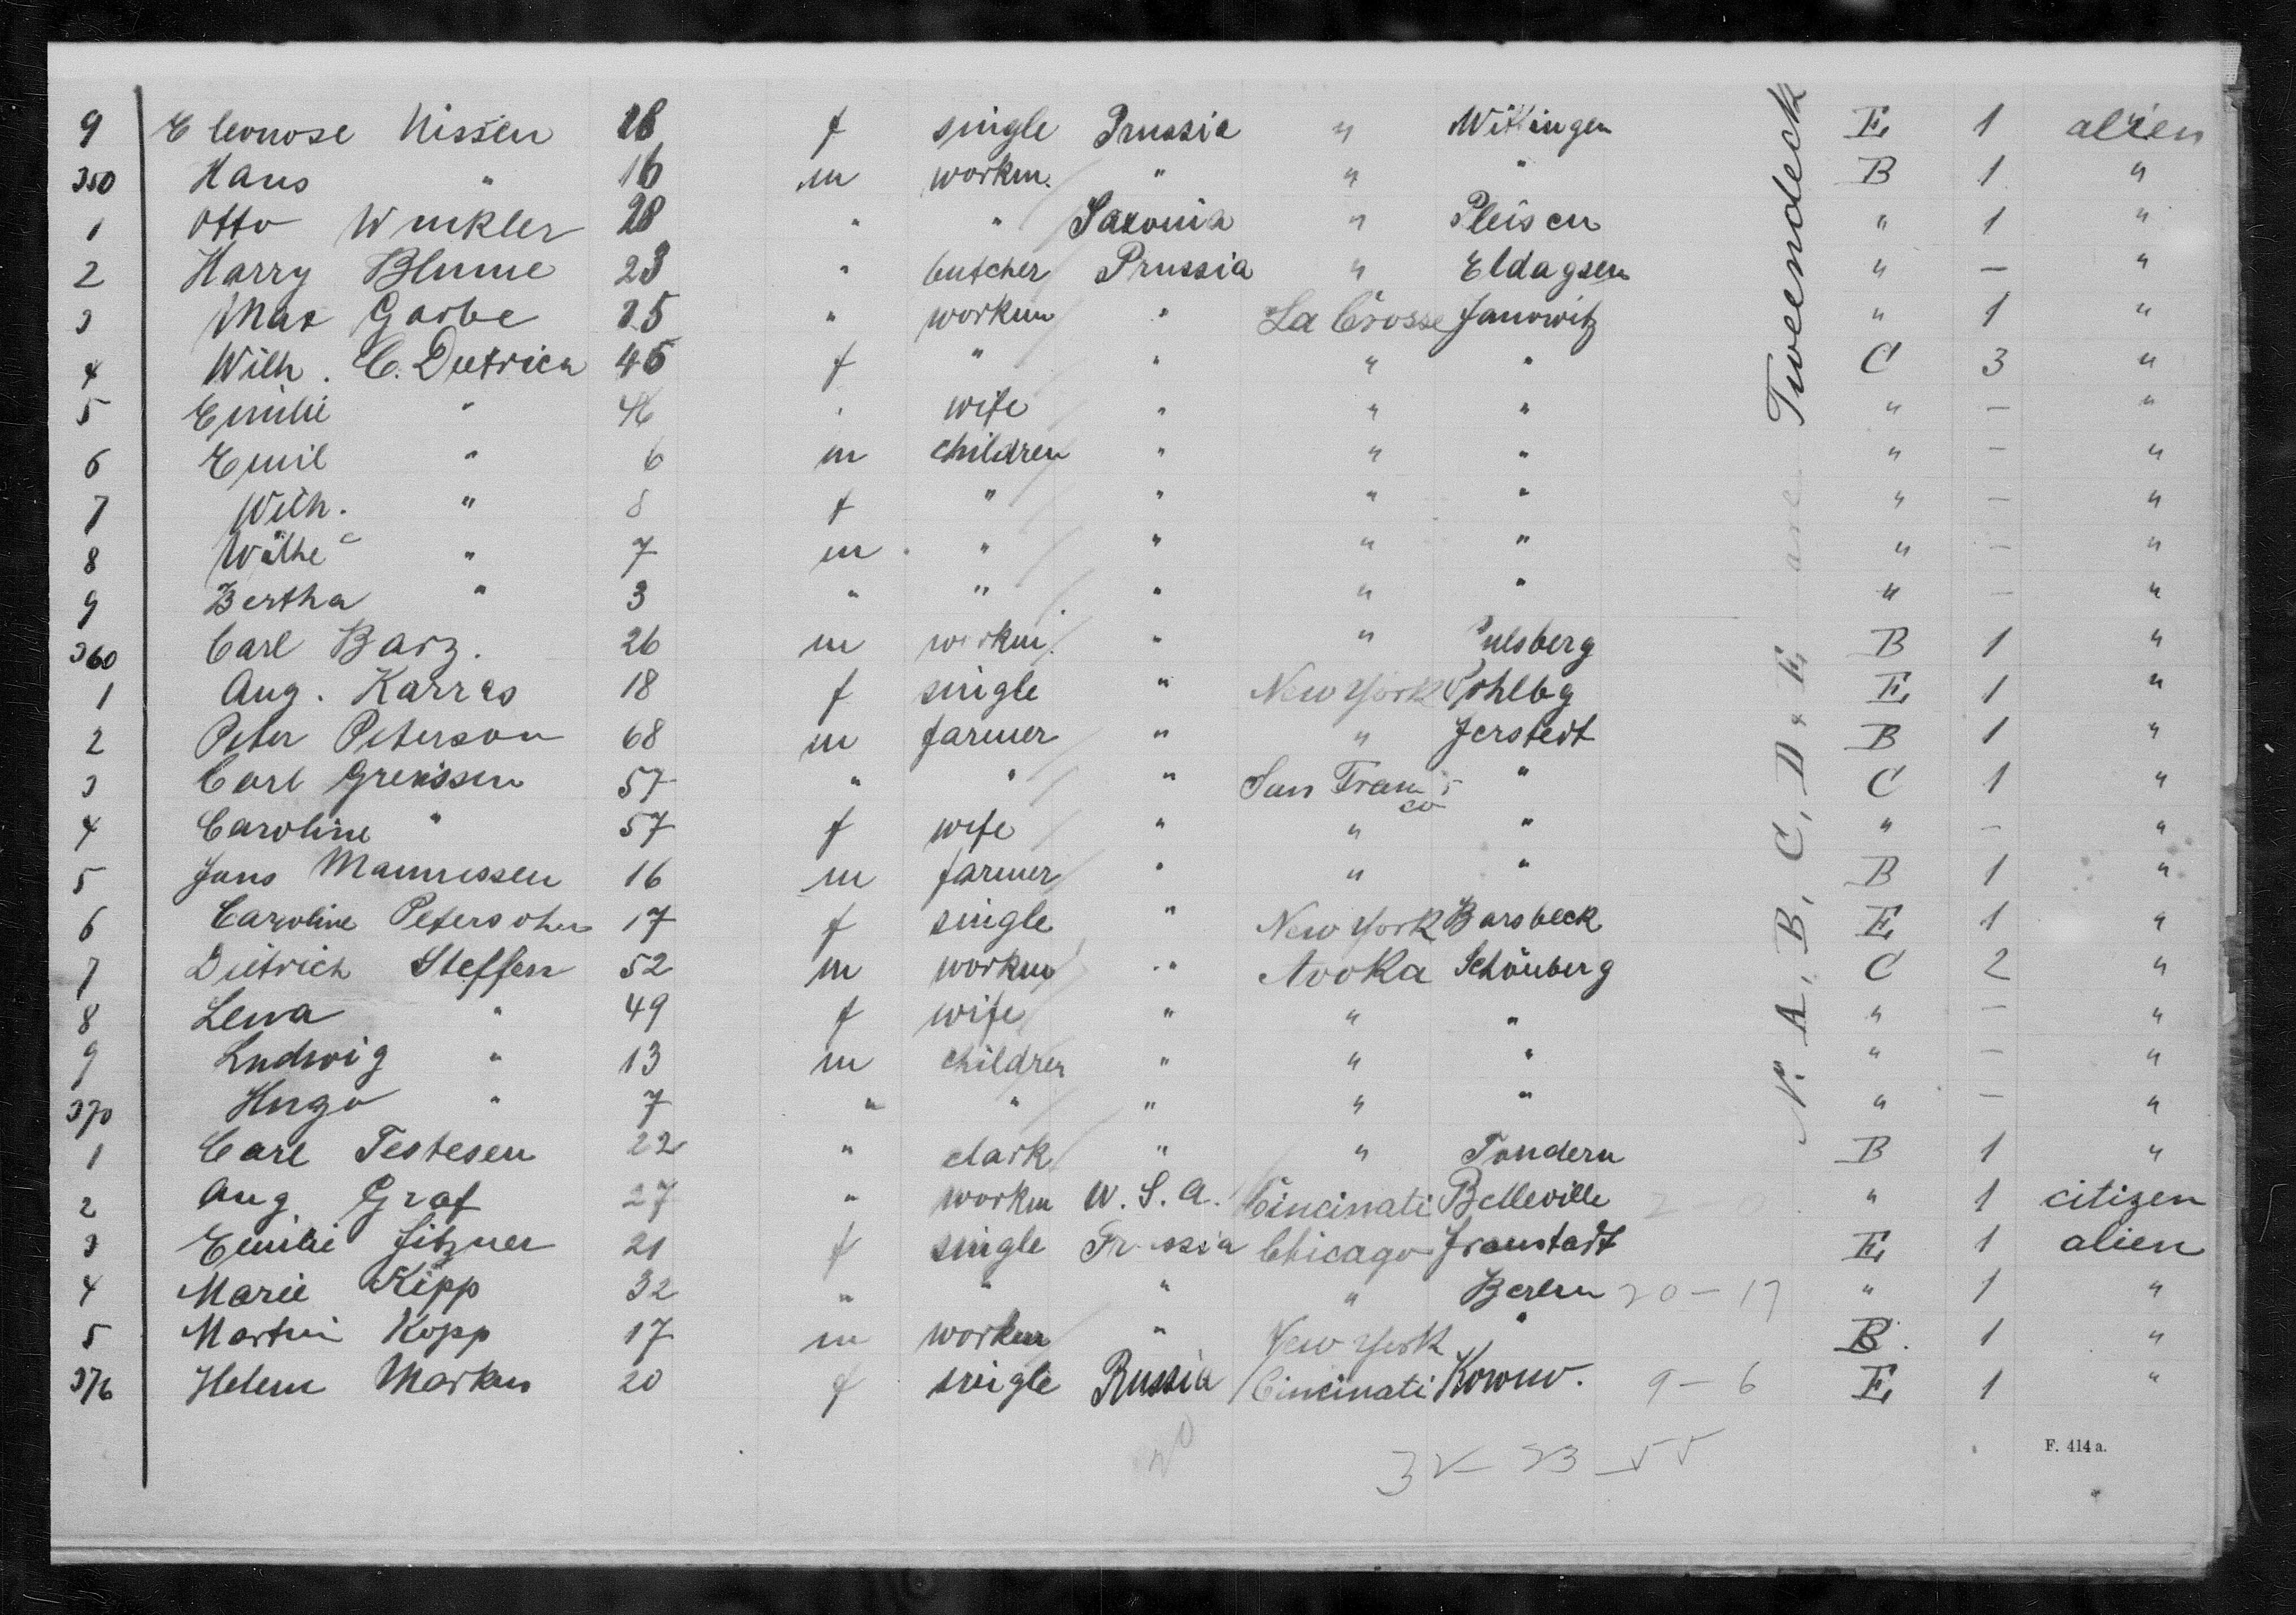 9 Eleonose Nissen 18 f single Prussia " Wittingen E 1 alien
350 Hans " 16 m workm. " " " B 1 "
1 Otto Winkler 28 " " Saxonia " Pleisen " 1 "
2 Harry Blume 23 " butcher Prussia " Eldagsen " — "
3 Max Garbe 25 " workm " La Crosse Janowitz " 1 "
4 Wilh. C. Dietrich 45 f " " " " C 3 "
5 Emilie " 46 " wife " " " " — "
6 Emil " 6 m children " " " " — "
7 Wilh. " 8 f " " " " " — "
8 " 7 m " " " " " — "
9 Bertha " 3 " " " " " " — "
360 Carl Barz. 26 m workm. " " B 1 "
1 Aug. Karras 18 f single " New York E 1 "
2 Peter Peterson 68 m farmer " " Jerstedt B 1 "
3 Carl Grenssen 57 " " " San Francisco " C 1 "
4 Caroline " 57 f wife " " " " — "
5 Jans Mannissen 16 m farmer " " " B 1 "
6 Caroline Petersohn 17 f single " New York Barsbeck E 1 "
7 Dietrich Steffen 52 m workm " Avoka Schönberg C 2 "
8 Lena " 49 f wife " " " " — "
9 Ludwig " 13 m children " " " " — "
370 Hugo " 7 " " " " " " — "
1 Carl Testesen 22 " clark " " Tondern B 1 "
2 Aug. Graf 27 " workm U.S.A. Cincinati Belleville " 1 citizen
3 Emilie Fitzner 21 f single Prussia Chicago Fraustadt E 1 alien
4 Marie Kipp 32 " " " " Berlin 20 — 17 " 1 "
5 Martin Kopp 17 m workm " New York " B. 1 "
376 Helene Markus 20 f single Russia Cincinati Kowno. 9 — 6 E 1 "
No. A, B, C, D & E are Tweendeck
F. 414 a.